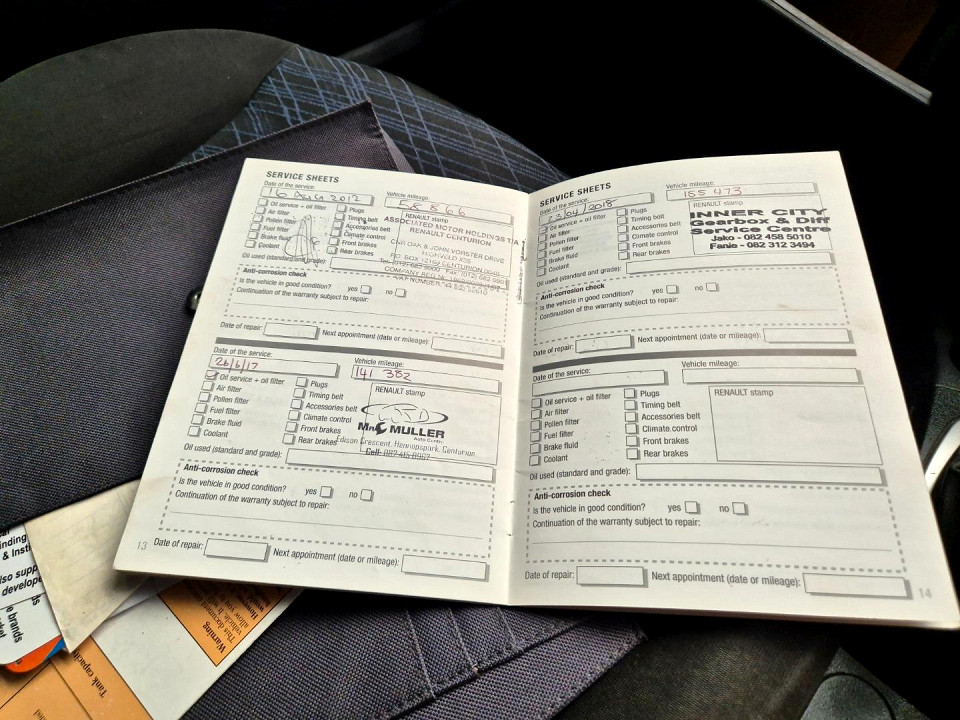 SERVICE SHEETS
Date of the service:
Vehicle mileage:
2012
58 866
Oil service + oil filter
Air filter
Pollen filter
Fuel filter
Brake fluid
Coolant
Plugs
Timing belt
Accessories belt
Climate control
Front brakes
Rear brakes
RENAULT stamp
ASSOCIATED MOTOR HOLDINGS T/A
RENAULT CENTURION
CNR OAK & JOHN VORSTER DRIVE
HIGHVELD X08
Oil used (standard and grade):
Anti-corrosion check
Is the vehicle in good condition? yes no
Continuation of the warranty subject to repair:
Date of repair:
Next appointment (date or mileage):
Date of the service:
Vehicle mileage:
26/6/17
141 382
Oil service + oil filter
Air filter
Pollen filter
Fuel filter
Brake fluid
Coolant
Plugs
Timing belt
Accessories belt
Climate control
Front brakes
Rear brakes
RENAULT stamp
MULLER
Edison Crescent, Hennopspark, Centurion
Oil used (standard and grade):
Anti-corrosion check
Is the vehicle in good condition? yes no
Continuation of the warranty subject to repair:
Date of repair:
Next appointment (date or mileage):
13
SERVICE SHEETS
Date of the service:
Vehicle mileage:
23/04/2018
155 473
Oil service + oil filter
Air filter
Pollen filter
Fuel filter
Brake fluid
Coolant
Plugs
Timing belt
Accessories belt
Climate control
Front brakes
Rear brakes
RENAULT stamp
INNER CITY
Gearbox & Diff
Service Centre
Jako - 082 458 5010
Fanie - 082 312 3494
Oil used (standard and grade):
Anti-corrosion check
Is the vehicle in good condition? yes no
Continuation of the warranty subject to repair:
Date of repair:
Next appointment (date or mileage):
Date of the service:
Vehicle mileage:
Oil service + oil filter
Air filter
Pollen filter
Fuel filter
Brake fluid
Coolant
Plugs
Timing belt
Accessories belt
Climate control
Front brakes
Rear brakes
RENAULT stamp
Oil used (standard and grade):
Anti-corrosion check
Is the vehicle in good condition? yes no
Continuation of the warranty subject to repair:
Date of repair:
Next appointment (date or mileage):
14
Warning
This document
Tank capacity
brands